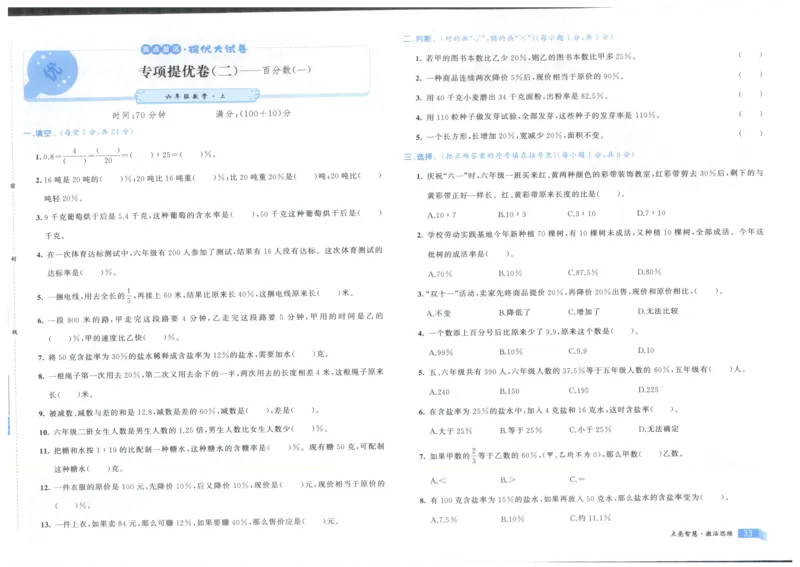 亮点激活·提优大试卷
优
专项提优卷(二)——百分数(一)
六年级数学·上
时间:70分钟 满分:(100+10)分
一、填空。(每空1分,共24分)
1. 0.8=4/( )=( )/20=( )∶25=( )%。
2. 16吨是20吨的( )%;20吨比16吨重( )%;比20吨重20%是( )吨;20吨比( )
吨轻20%。
3. 9千克葡萄烘干后是5.4千克,这种葡萄的含水率是( ),50千克这种葡萄烘干后是( )
千克。
4. 在一次体育达标测试中,六年级有200人参加了测试,结果有16人没有达标。这次体育测试的
达标率是( )%。
5. 一捆电线,用去全长的1/5,再接上60米,结果比原来长40%,这捆电线原来长( )米。
6. 一段800米的路,甲走完这段路要4分钟,乙走完这段路要5分钟,甲用的时间是乙的
( )%,甲的速度比乙快( )%。
7. 将50克含盐率为30%的盐水稀释成含盐率为12%的盐水,需要加水( )克。
8. 一根绳子第一次用去20%,第二次又用去余下的一半,两次用去的长度相差4米,这根绳子原来
长( )米。
9. 被减数、减数与差的和是12.8,减数是差的60%,减数是( ),差是( )。
10. 六年级二班女生人数是男生人数的1.25倍,男生人数比女生人数少( )%。
11. 把糖和水按1∶19的比配制一种糖水,这种糖水的含糖率是( )%。现有糖50克,可配制
这种糖水( )克。
12. 一件衣服的原价是100元,先降价10%,后又降价10%,现价是( )元,现价相当于原价的
( )%。
13. 一件上衣,如果卖84元,那么可赚12%,如果要赚40%,那么售价应是( )元。
密
封
线
二、判断。(对的画“√”,错的画“×”)(每小题1分,共5分)
1. 若甲的图书本数比乙少20%,则乙的图书本数比甲多25%。 ( )
2. 一种商品连续两次降价5%后,现价相当于原价的90%。 ( )
3. 用40千克小麦磨出34千克面粉,出粉率是82.5%。 ( )
4. 用110粒种子做发芽试验,全部发芽,这些种子的发芽率是110%。 ( )
5. 一个长方形,长增加20%,宽减少20%,面积不变。 ( )
三、选择。(把正确答案的序号填在括号里)(每小题1分,共8分)
1. 庆祝“六一”时,六年级一班买来红、黄两种颜色的彩带装饰教室,红彩带剪去30%后,剩下的与
黄彩带正好一样长。红、黄彩带原来长度的比是( )。
A.10∶7 B.10∶3 C.3∶10 D.7∶10
2. 学校劳动实践基地今年新种植70棵树,有10棵树未成活,又种植10棵树,全部成活。今年这
批树的成活率是( )。
A.70% B.10% C.87.5% D.80%
3. “双十一”活动,卖家先将商品提价20%,再降价20%出售,现价和原价相比,( )。
A.不变 B.降低了 C.增加了 D.无法比较
4. 一个数添上百分号后比原来少了9.9,原来这个数是( )。
A.99% B.10% C.9.9 D.10
5. 五、六年级共有390人,六年级人数的37.5%等于五年级人数的60%,五年级有( )人。
A.240 B.150 C.195 D.225
6. 在含盐率为25%的盐水中,加入4克盐和16克水,这时含盐率( )。
A.大于25% B.等于25% C.小于25% D.无法确定
7. 如果甲数的2/3等于乙数的60%,(甲、乙均不为0),那么甲数( )乙数。
A.< B.> C.=
8. 有100克含盐率为15%的盐水,如果再放入50克水,那么盐水的含盐率变为( )。
A.7.5% B.10% C.约11.1%
点亮智慧·激活思维 33